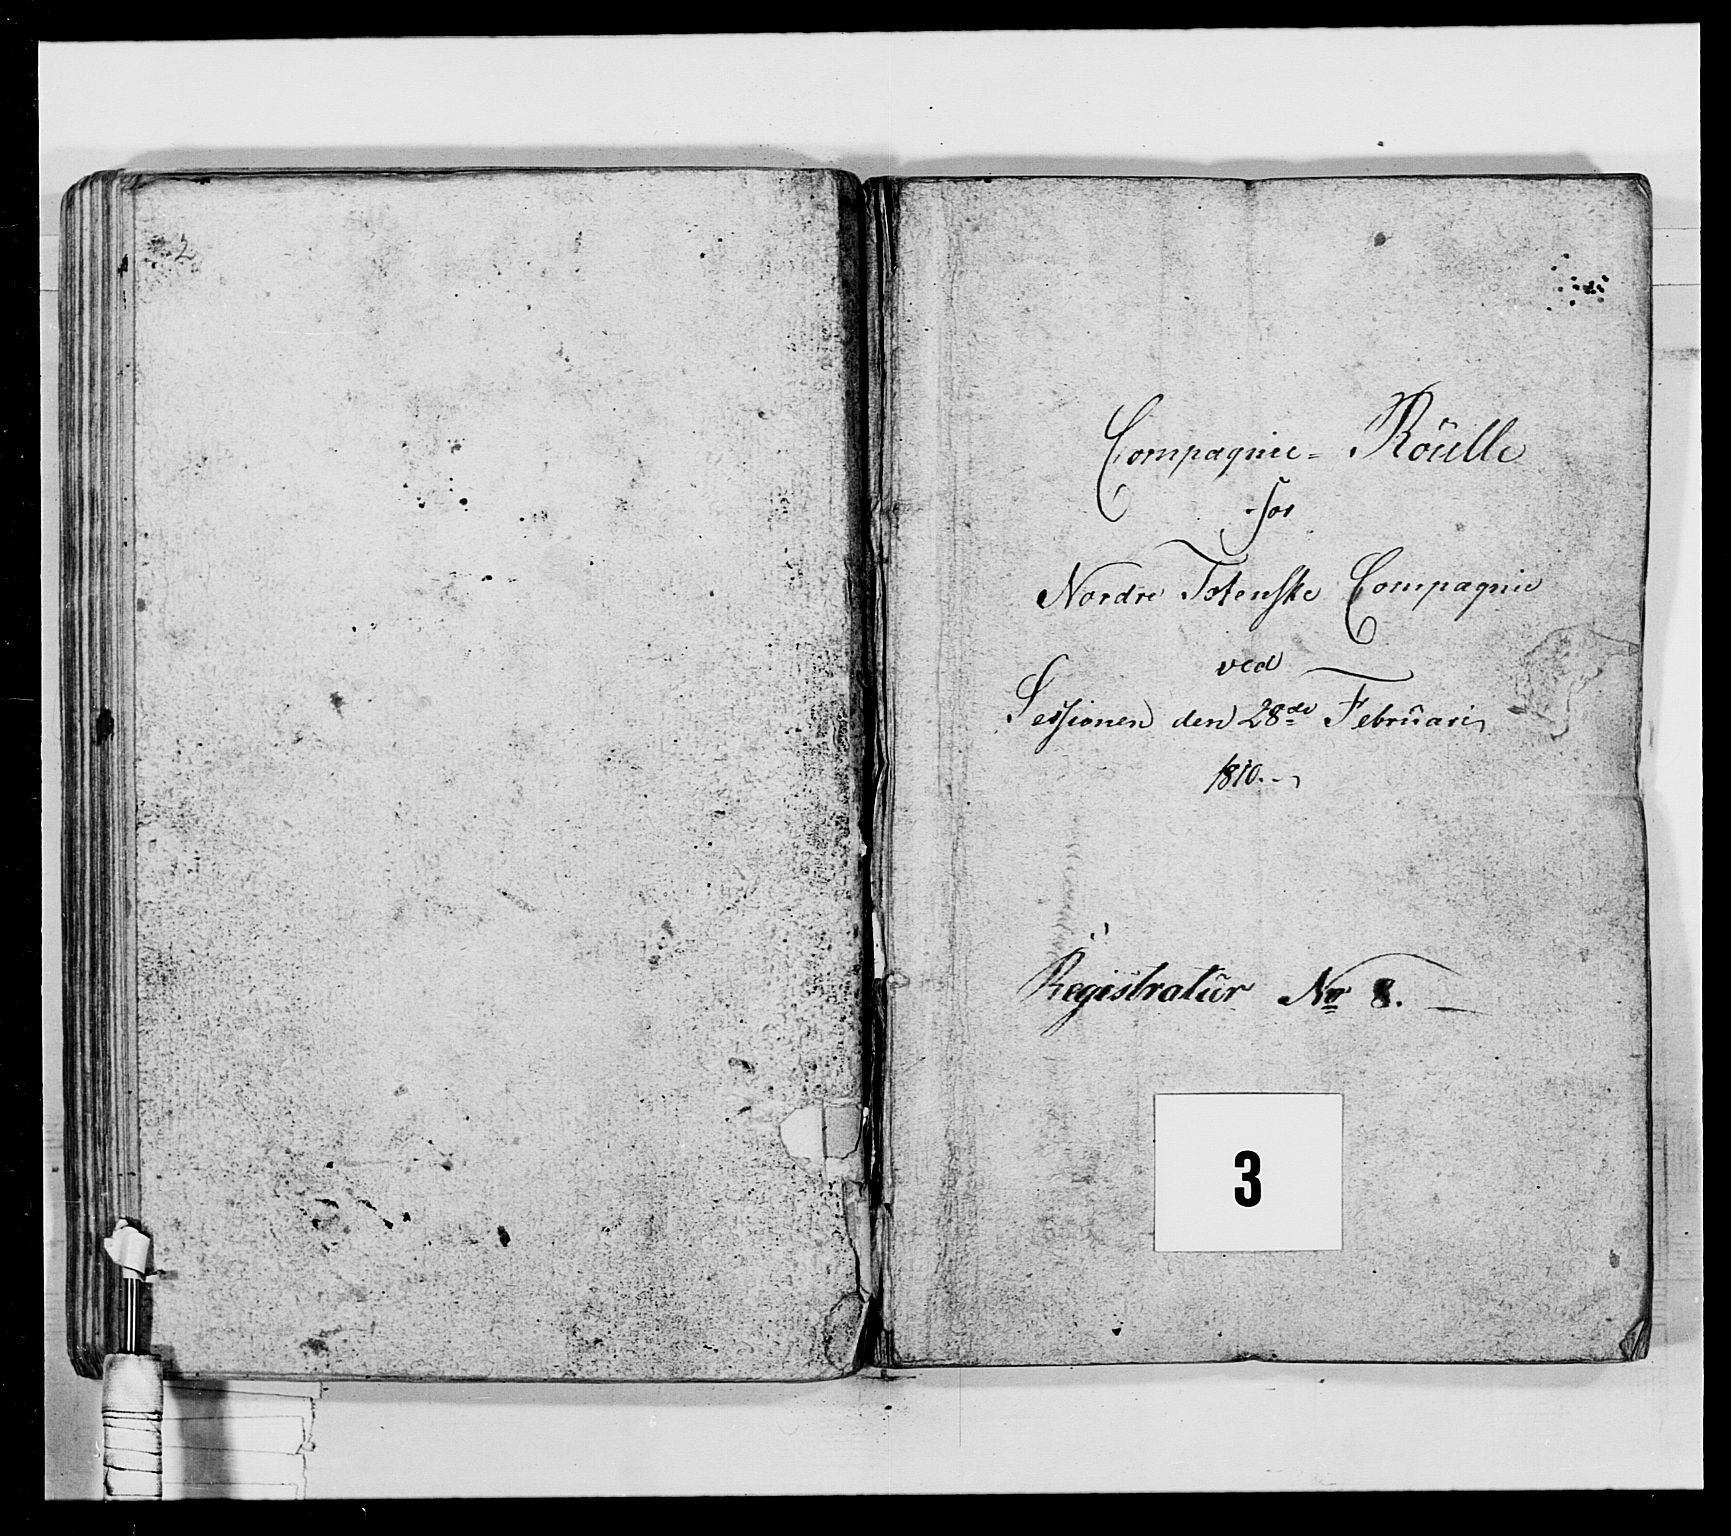 2
Compagnie = Roulle
for
Nordre Totenske Compagnie
ved
Sessionen den 28de Februari
1810.
Registratur No 8.
3